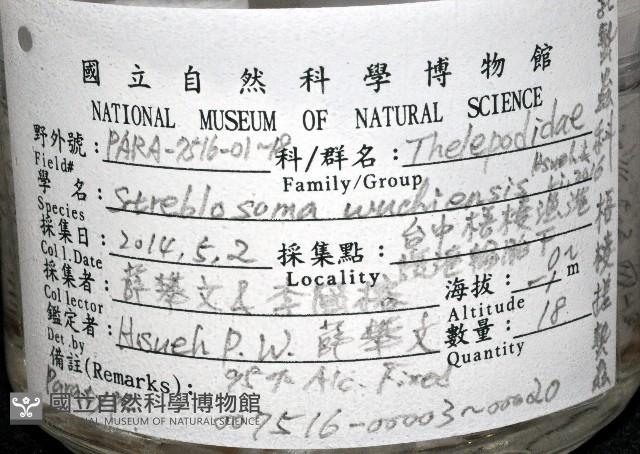 國立自然科學博物館
NATIONAL MUSEUM OF NATURAL SCIENCE
野外號: PARA-7516-01~18 科/群名: Thelepodidae
Field# Family/Group
學名: Streblosoma wuchiensis Hsueh & Li, 2016
Species
採集日: 2014.5.2 採集點: 台中梧棲漁港
Coll.Date Locality
採集者: 薛攀文& 海拔: 0~-1 m
Collector Altitude
鑑定者: Hsueh P. W. 薛攀文 數量: 18
Det.by Quantity
備註(Remarks): 95% Alc. Fixed
007516-00003~00020
國立自然科學博物館
NATIONAL MUSEUM OF NATURAL SCIENCE